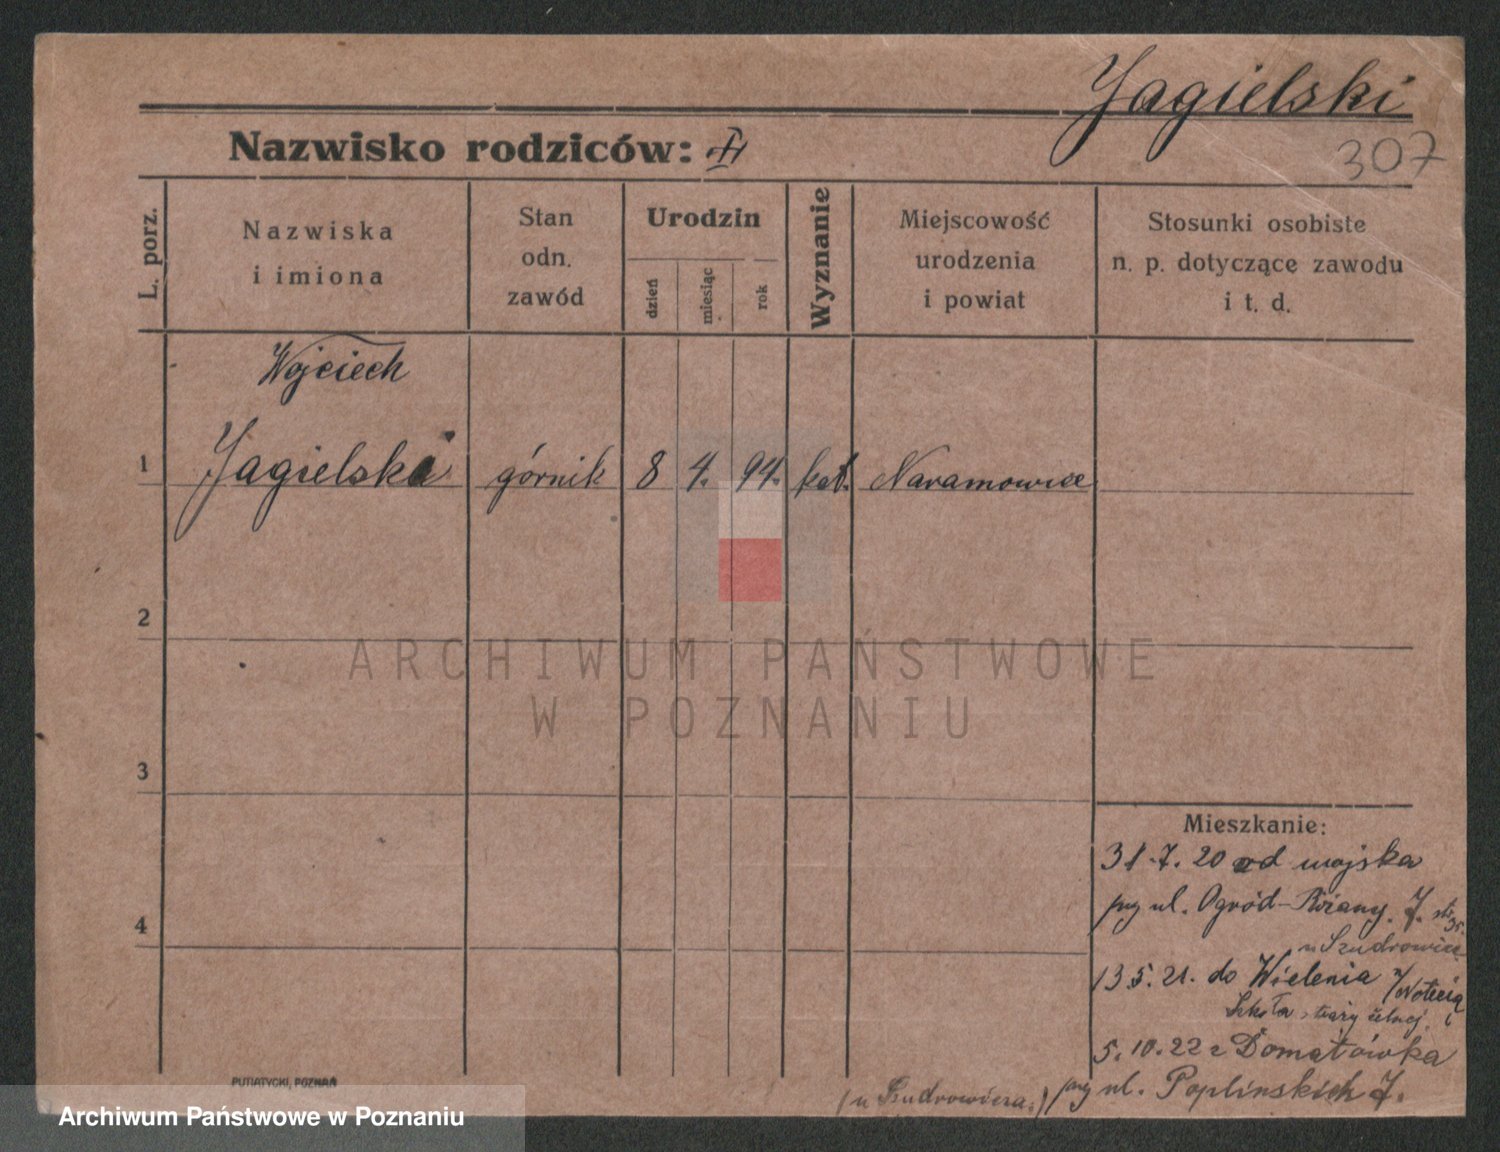 Jagielski
307
Nazwisko rodziców:
L. porz.
Nazwiska
i imiona
Stan
odn.
zawód
Urodzin
dzień
miesiąc
rok
Wyznanie
Miejscowość
urodzenia
i powiat
Stosunki osobiste
n. p. dotyczące zawodu
i t. d.
Wojciech
1 Jagielski górnik 8 4. 94. kat. Naramowice
2
ARCHIWUM PAŃSTWOWE
W POZNANIU
3
Mieszkanie:
31.7.20 od wojska
przy ul. Ogród-Różany. 7.
4
u Szudrowicza
13.5.21. do Wielenia n/Notecią
5.10.22 z Domatówka
przy ul. Poplinskich 7.
(u Szudrowicza.)
PUTIATYCKI, POZNAŃ
Archiwum Państwowe w Poznaniu